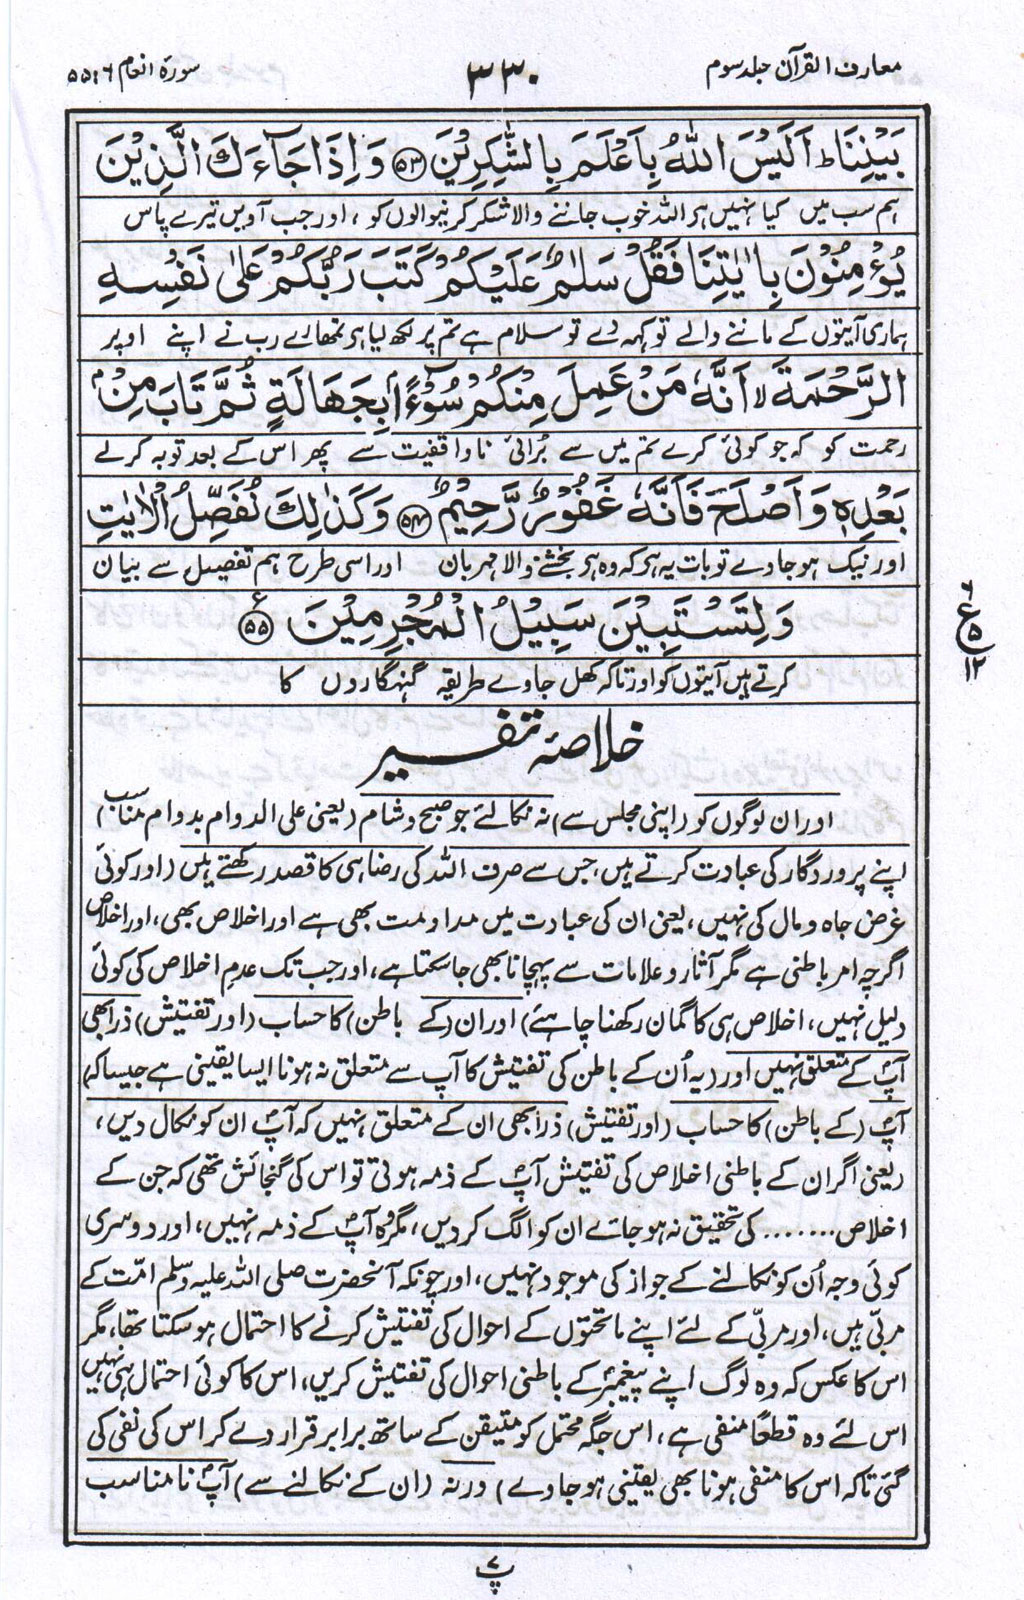 معارف القرآن جلد سوم
۳۳۰
سورۃ انعام ۶:۵۵
بَيْنِنَا ؕ اَلَيْسَ اللّٰهُ بِاَعْلَمَ بِالشّٰكِرِيْنَ ﴿۵۳﴾ وَاِذَا جَآءَكَ الَّذِيْنَ
ہم سب میں کیا نہیں ہر اللہ خوب جاننے والا شکر کرنیوالوں کو ، اور جب آویں تیرے پاس
يُؤْمِنُوْنَ بِاٰيٰتِنَا فَقُلْ سَلٰمٌ عَلَيْكُمْ كَتَبَ رَبُّكُمْ عَلٰى نَفْسِهِ
ہماری آیتوں کے ماننے والے تو کہہ دے تو سلام ہے تم پر لکھ لیا ہر تمھارے رب نے اپنے اوپر
الرَّحْمَةَ ۙ اَنَّهٗ مَنْ عَمِلَ مِنْكُمْ سُوْٓءًۢا بِجَهَالَةٍ ثُمَّ تَابَ مِنْۢ
رحمت کو کہ جو کوئی کرے تم میں سے بُرائی ناواقفیت سے پھر اس کے بعد توبہ کرلے
بَعْدِهٖ وَاَصْلَحَ فَاَنَّهٗ غَفُوْرٌ رَّحِيْمٌ ﴿۵۴﴾ وَكَذٰلِكَ نُفَصِّلُ الْاٰيٰتِ
اور نیک ہوجاوے تو بات یہ ہر کہ وہ ہر بخشنے والا مہربان اور اسی طرح ہم تفصیل سے بیان
وَلِتَسْتَبِيْنَ سَبِيْلُ الْمُجْرِمِيْنَ ﴿۵۵﴾ ع
۶
ع ۵
۱۲
کرتے ہیں آیتوں کو اور تاکہ کھل جاوے طریقہ گنہگاروں کا
خلاصۂ تفسیر
اور ان لوگوں کو (اپنی مجلس سے) نہ نکالئے جو صبح و شام (یعنی علی الدوام بدوام مناسب)
اپنے پروردگار کی عبادت کرتے ہیں، جس سے صرف اللہ کی رضا ہی کا قصد رکھتے ہیں (اور کوئی
غرض جاہ و مال کی نہیں ، یعنی ان کی عبادت میں مداومت بھی ہے اور اخلاص بھی ، اور اخلاص
اگرچہ امر باطنی ہے مگر آثار و علامات سے پہچانا بھی جاسکتا ہے ، اور جب تک عدمِ اخلاص کی کوئی
دلیل نہیں ، اخلاص ہی کا گمان رکھنا چاہئے) اور ان (کے باطن) کا حساب (اور تفتیش) ذرا بھی
آپؐ کے متعلق نہیں اور (یہ اُن کے باطن کی تفتیش کا آپ سے متعلق نہ ہونا ایسا یقینی ہے جیسا کہ)
آپؐ (کے باطن) کا حساب (اور تفتیش) ذرا بھی ان کے متعلق نہیں کہ آپؐ ان کو نکال دیں ،
(یعنی اگر ان کے باطنی اخلاص کی تفتیش آپؐ کے ذمہ ہوتی تو اس کی گنجائش تھی کہ جن کے
اخلاص ....... کی تحقیق نہ ہوجائے ان کو الگ کردیں ، مگر وہ آپؐ کے ذمہ نہیں ، اور دوسری
کوئی وجہ اُن کو نکالنے کے جواز کی موجود نہیں ، اور چونکہ آنحضرت صلی اللہ علیہ وسلم امّت کے
مربّی ہیں ، اور مربّی کے لئے اپنے ماتحتوں کے احوال کی تفتیش کرنے کا احتمال ہوسکتا تھا ، مگر
اس کا عکس کہ وہ لوگ اپنے پیغمبرؐ کے باطنی احوال کی تفتیش کریں ، اس کا کوئی احتمال ہی نہیں
اس لئے وہ قطعًا منفی ہے ، اس جگہ محتمل کو متیقن کے ساتھ برابر قرار دے کر اس کی نفی کی
گئی تاکہ اس کا منفی ہونا بھی یقینی ہوجاوے) ورنہ (ان کے نکالنے سے) آپؐ نا مناسب